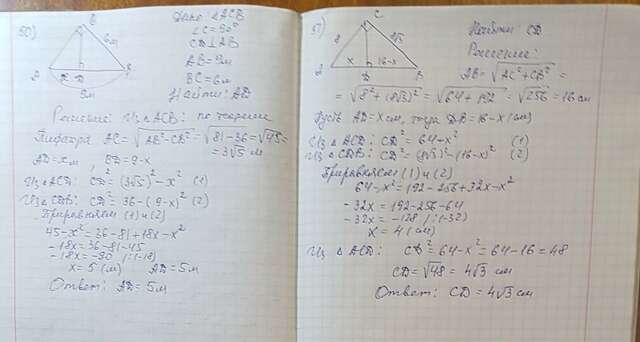 50)
C
6м
A x D B
9м
Дано: △ACB
∠C=90°
CD⊥AB
AB=9м
BC=6м
Найти: AD
Решение: Из △ACB: по теореме
Пифагора AC=√AB²-CB²=√81-36=√45=
=3√5 м
AD=xм, BD=9-x
Из △ACD: CD²=(3√5)²-x² (1)
Из △CDB: CD²=36-(9-x)² (2)
Приравняем (1) и (2)
45-x²=36-81+18x-x²
-18x=36-81-45
-18x=-90 /:(-18)
x=5(м) AD=5м
Ответ: AD=5м
51)
C
8 8√3
A x D 16-x B
Найти: CD
Решение:
AB=√AC²+CB²=
=√8²+(8√3)²=√64+192=√256=16см
Пусть AD=xсм, тогда DB=16-x(см)
Из △ACD: CD²=64-x² (1)
Из △CDB: CD²=(8√3)²-(16-x)² (2)
Приравняем (1) и (2)
64-x²=192-256+32x-x²
-32x=192-256-64
-32x=-128 /:(-32)
x=4(см)
Из △ACD: CD²=64-x²=64-16=48
CD=√48=4√3 см
Ответ: CD=4√3 см